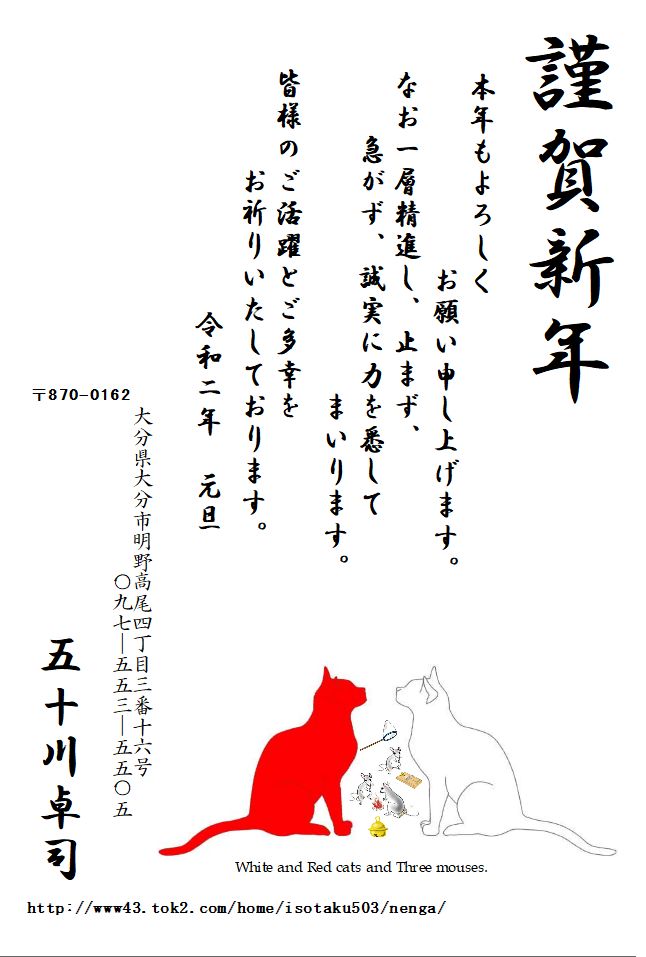 謹賀新年
本年もよろしく
お願い申し上げます。
なお一層精進し、止まず、
急がず、誠実に力を悉して
まいります。
皆様のご活躍とご多幸を
お祈りいたしております。
令和二年　元旦
〒870-0162
大分県大分市明野高尾四丁目三番十六号
〇九七―五五三―五五〇五
五十川卓司
White and Red cats and Three mouses.
http://www43.tok2.com/home/isotaku503/nenga/